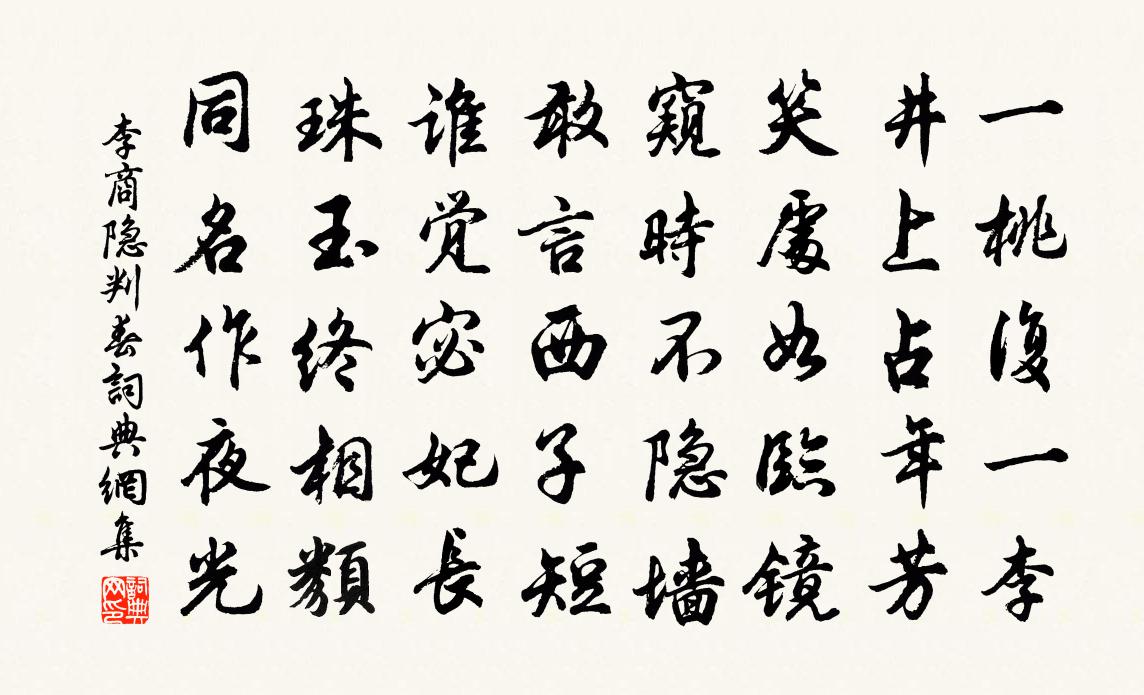 一桃復一李
井上占年芳
笑處如臨镜
窺時不隐墙
敢言西子短
谁觉宓妃長
珠玉终相類
同名作夜光
李商隐判春詞典網集
詞典網印